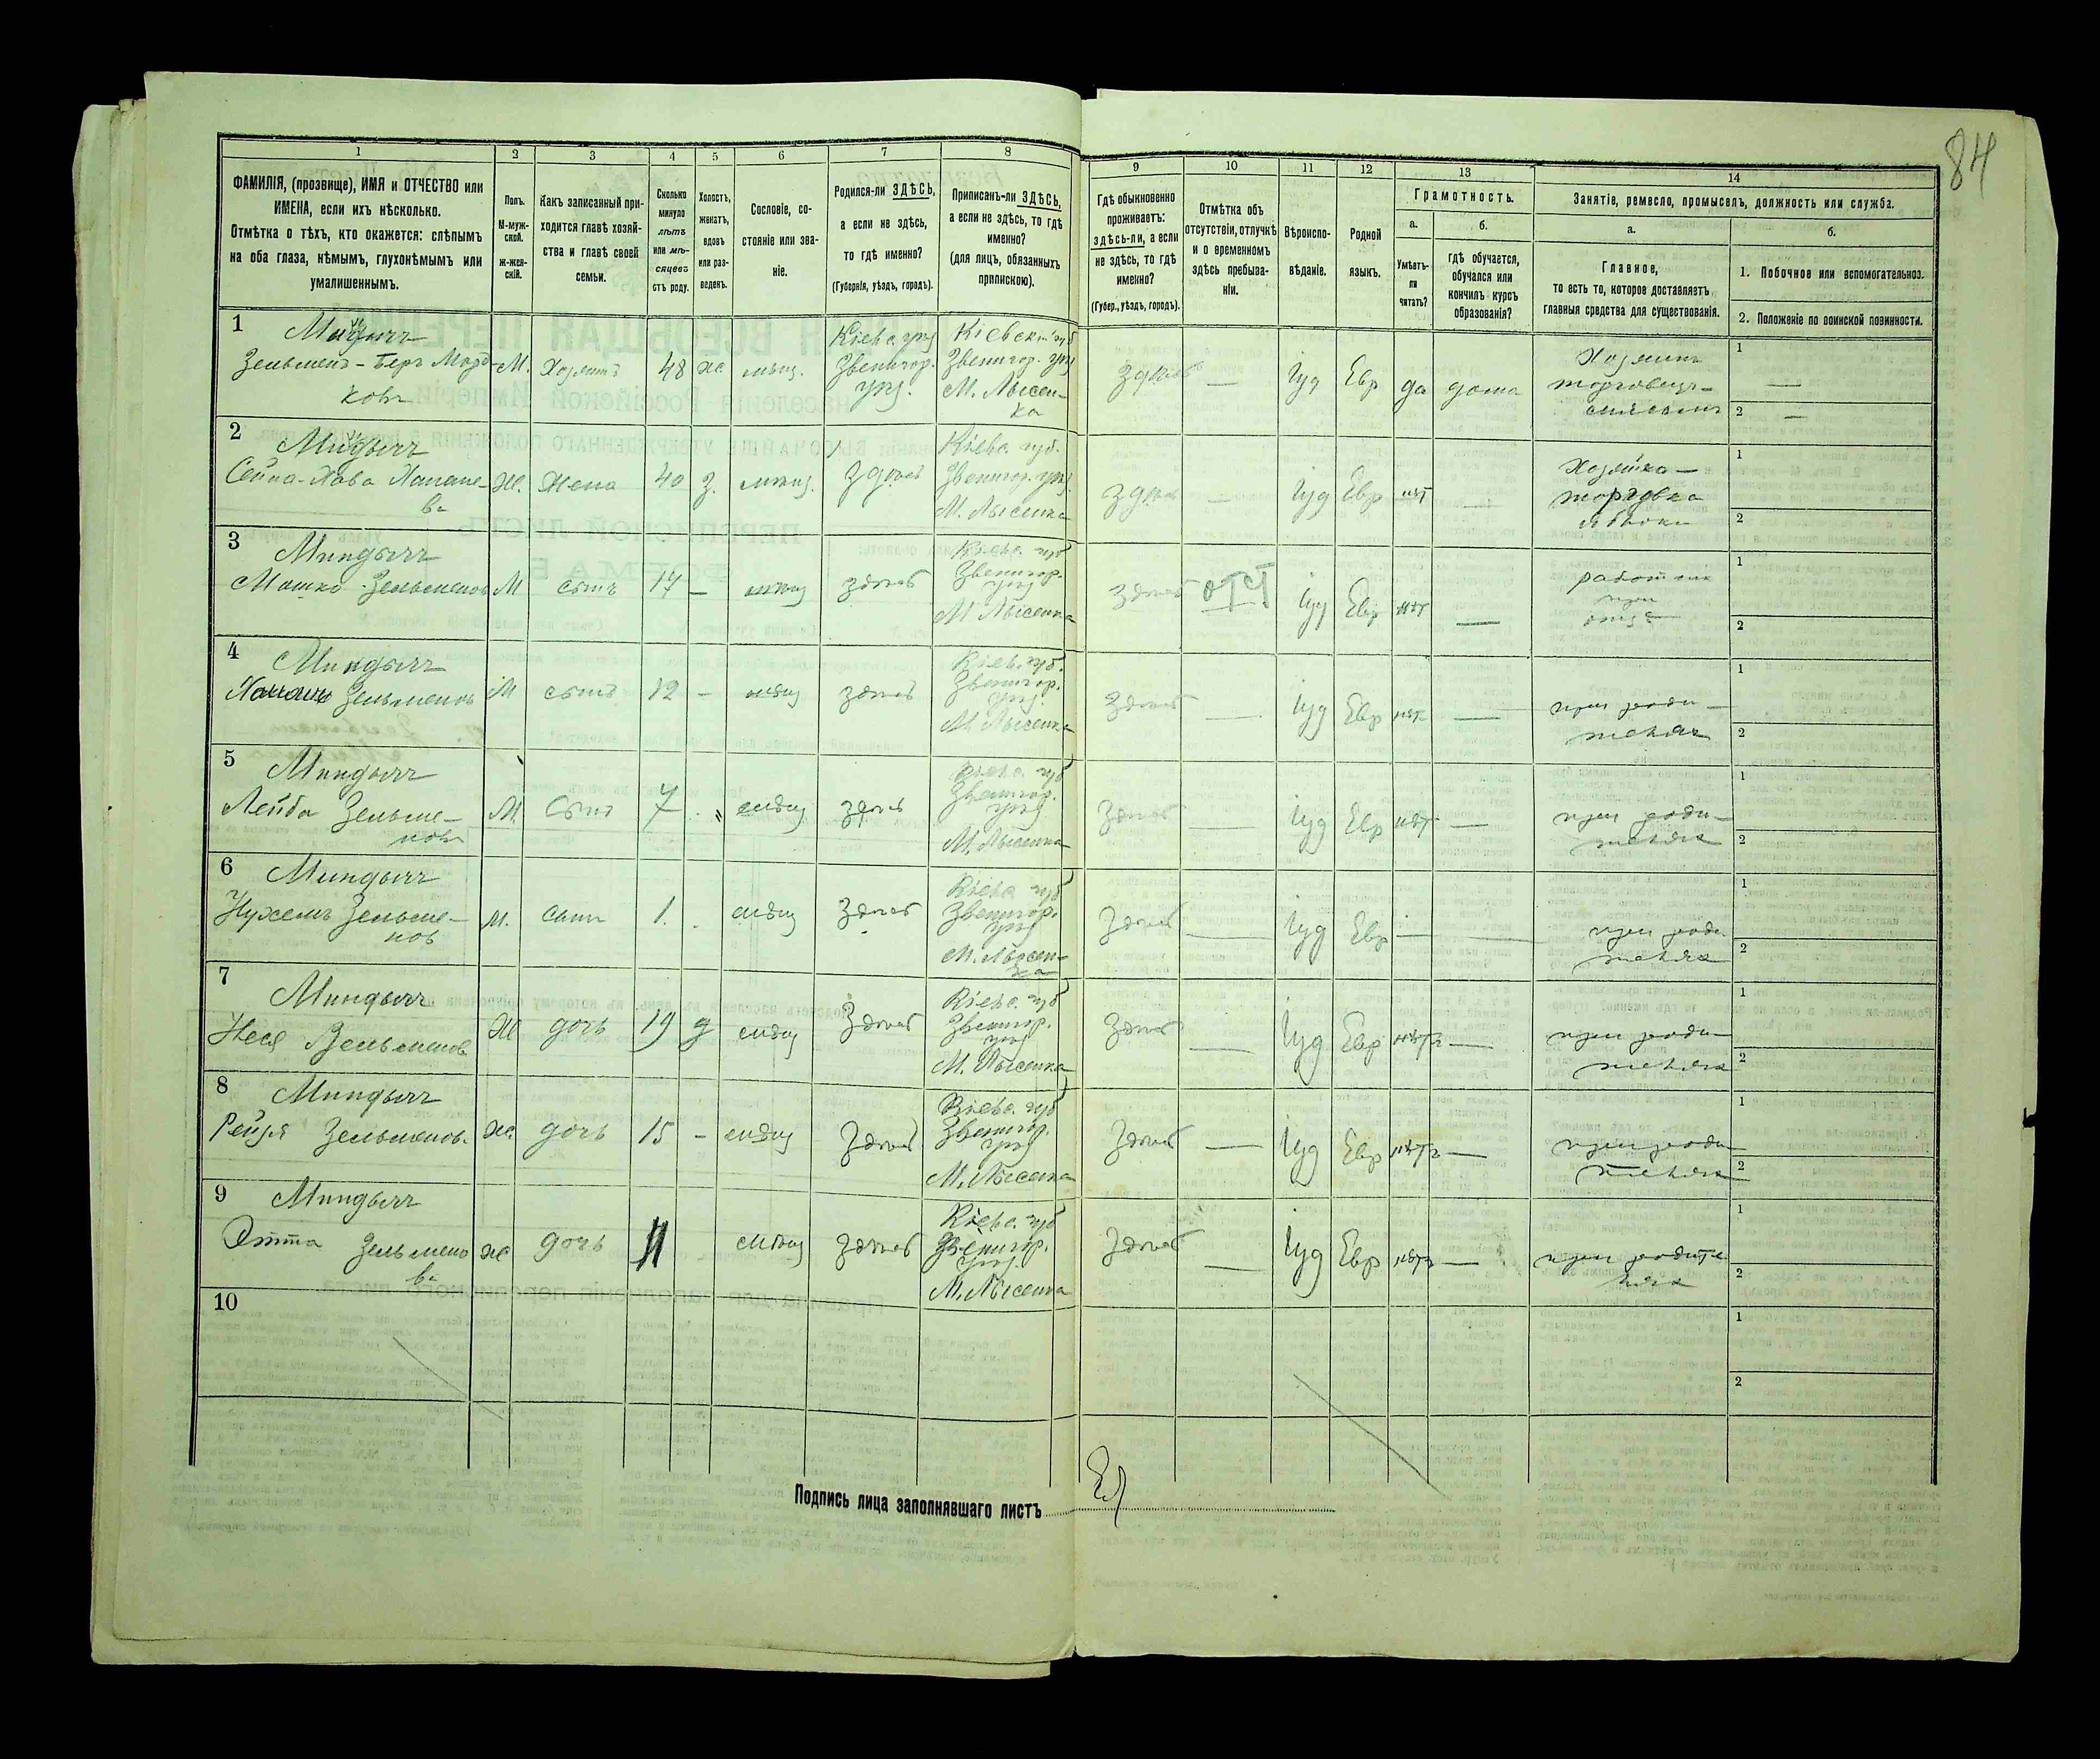 84
1
2
3
4
5
6
7
8
9
10
11
12
13
14
ФАМИЛІЯ, (прозвище), ИМЯ и ОТЧЕСТВО или
ИМЕНА, если ихъ нѣсколько.
Отмѣтка о тѣхъ, кто окажется: слѣпымъ
на оба глаза, нѣмымъ, глухонѣмымъ или
умалишеннымъ.
Полъ.
М-муж-
ской.
ж-жен-
скій.
Какъ записанный при-
ходится главѣ хозяй-
ства и главѣ своей
семьи.
Сколько
минуло
лѣтъ
или мѣ-
сяцевъ
отъ роду.
Холостъ,
женатъ,
вдовъ
или раз-
веденъ.
Сословіе, со-
стояніе или зва-
ніе.
Родился-ли ЗДѢСЬ,
а если не здѣсь,
то гдѣ именно?
(Губернія, уѣздъ, городъ).
Приписанъ-ли ЗДѢСЬ,
а если не здѣсь, то гдѣ
именно?
(для лицъ, обязанныхъ
припискою).
Гдѣ обыкновенно
проживаетъ:
здѣсь-ли, а если
не здѣсь, то гдѣ
именно?
(Губер., уѣздъ, городъ).
Отмѣтка объ
отсутствіи, отлучкѣ
и о временномъ
здѣсь пребыва-
ніи.
Вѣроиспо-
вѣданіе.
Родной
языкъ.
Грамотность.
а.
Умѣетъ-
ли
читать?
б.
гдѣ обучается,
обучался или
кончилъ курсъ
образованія?
Занятіе, ремесло, промыселъ, должность или служба.
а.
Главное,
то есть то, которое доставляетъ
главныя средства для существованія.
б.
1. Побочное или вспомогательное.
2. Положеніе по воинской повинности.
1
Зельменъ-Беръ Морд-
ковъ
М. Хозяинъ 48 ж. мѣщ.
Звенигор.
Звенигор. уѣз
М. Лысен-
ка
Іуд Евр да дома
Хозяинъ
1 —
2 —
2
Жена 40 З. мѣщ.
Кіевс. губ.
Звенигор. уѣз.
М. Лысенка
— Іуд Евр нѣт —
Хозяйка —
торговка
1
2
3 Миндычъ
Мошко Зельменов М сынъ 17 — мѣщ здѣсь
Кіевс. губ
Звенигор.
уѣз
М Лысенка
здѣсь ОТСТ Іуд Евр нѣт —
работник
при
отцѣ
1
2
4 Миндычъ
Зельменов М сынъ 12 - мѣщ здѣсь
Кіев. губ.
Звенигор.
уѣз.
М. Лысенка
здѣсь — Іуд Евр нѣт —
при роди-
телях
1
2
5 Миндычъ
Лейба Зельме-
новъ
М. Сынъ 7 мѣщ здѣсь
Кіевс. губ
Звенигор.
уѣз
М. Лысенка
здѣсь — Іуд Евр нѣт —
при роди-
телях
1
2
6 Миндычъ
Нухемъ Зельме-
нов
М. сынъ 1. мѣщ здѣсь
Кіевс губ
Звенигор.
уѣз
М. Лысен-
ка
здѣсь — Іуд Евр —
при роди
телях
1
2
7
Миндычъ
Неся Зельменов. Ж дочь 19 д мѣщ здѣсь
Кіевс. губ
Звенигор.
уѣз
М. Лысенка
здѣсь — Іуд Евр нѣтъ —
при роди-
телях
1
2
8 Миндычъ
Рейзя Зельменов. Ж. дочь 15 - мѣщ здѣсь
Кіевс. губ
Звенигор.
уѣз
М. Лысенка
здѣсь — Іуд Евр нѣтъ —
при роди-
телях
1
2
9 Миндычъ
Этта Зельмено
ва
Ж дочь 11 мѣщ здѣсь
Кіевс. губ
Звенигор.
уѣз.
М. Лысенка
здѣсь — Іуд Евр нѣтъ —
при родите
лях
1
2
10
1
2
Подпись лица заполнявшаго листъ